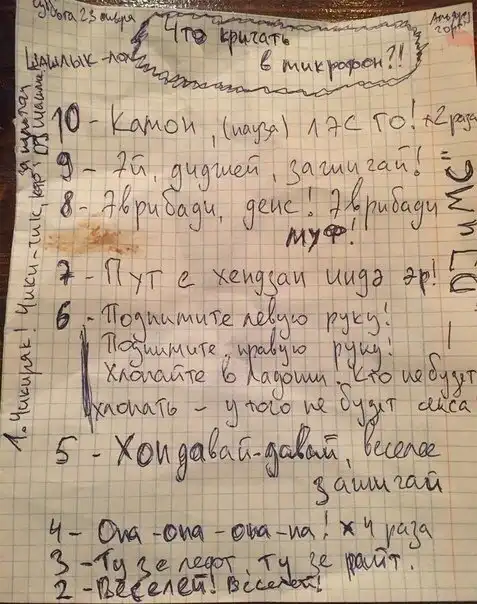 Суббота 23 января
Что кричать
в микрофон?!
ШАШЛЫК-
10 - Камон, (пауза) ЛЭС ГО! x2 раза
9 - Эй, диджей, зажигай!
8 - Эврибади, денс! Эврибади
муф!
7 - Пут е хендзап индэ эр!
6 - Поднимите левую руку!
Поднимите правую руку!
Хлопайте в ладоши. Кто не будет
хлопать - у того не будет секса
5 - Хоп давай-давай, веселее
зажигай
4 - Опа-опа-опа-па! x 4 раза
3 - Ту зе лефт, ту зе райт.
2 - Веселей! Веселей!
1. Чикиряк! Чики-чик, кто
за пультом
DJ
DJ и МС"